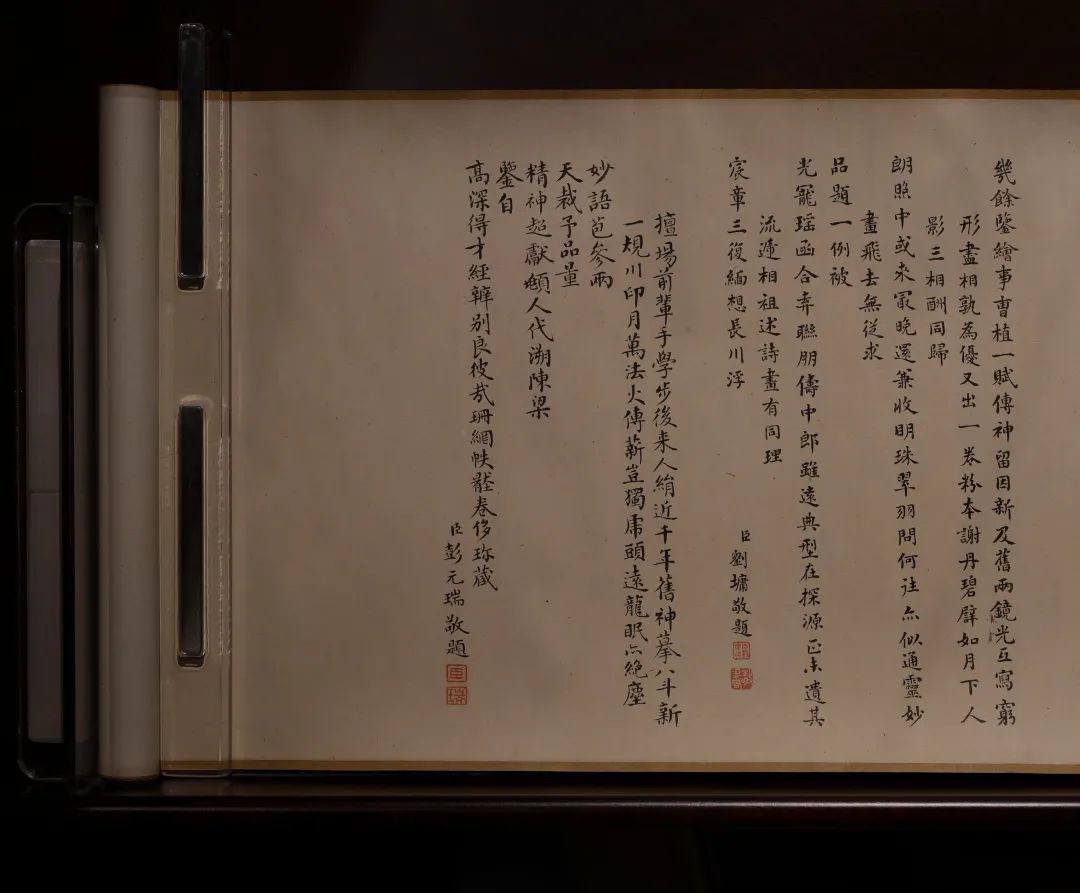 幾餘鑒繪事曹植一賦傳神留因新及舊兩鏡光互寫窮
形盡相孰為優又出一卷粉本謝丹碧譬如月下人
影三相酬同歸
朗照中或来最晚還兼收明珠翠羽問何往亦似通靈妙
畫飛去無從求
品題一例被
光寵瑶函合弆聯朋儔中郎雖遠典型在探源正未遺其
流遞相祖述詩畫有同理
宸章三復緬想長川浮
臣劉墉敬題
擅場前輩手學步後来人絹近千年舊神摹八斗新
一規川印月萬法火傳薪豈獨虎頭遠龍眠亦絶塵
妙語苞參兩
天裁予品量
精神超獻顧人代溯陳梁
鑒自
高深得才經韓别良彼哉珊網帙豔卷侈珍藏
臣彭元瑞敬題